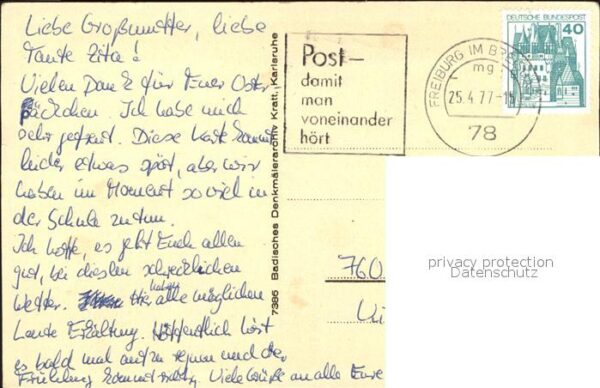 Liebe Großmutter, liebe
Tante Zita!
Vielen Dank für Euer Oster
päckchen. Ich habe mich
sehr gefreut. Diese Karte kommt
leider etwas spät, aber wir
haben im Moment so viel in
der Schule zu tun.
Ich hoffe, es geht Euch allen
gut, bei diesem schrecklichen
Wetter. Hier haben alle möglichen
Leute Erkältung. Hoffentlich hört
es bald mal auf zu regnen und der
Frühling kommt richtig. Viele Grüße an alle Eure
7386 Badisches Denkmälerarchiv Kratt, Karlsruhe
Post-
damit
man
voneinander
hört
FREIBURG IM BR
mg
25.4.77-15
78
DEUTSCHE BUNDESPOST
40
760
privacy protection
Datenschutz